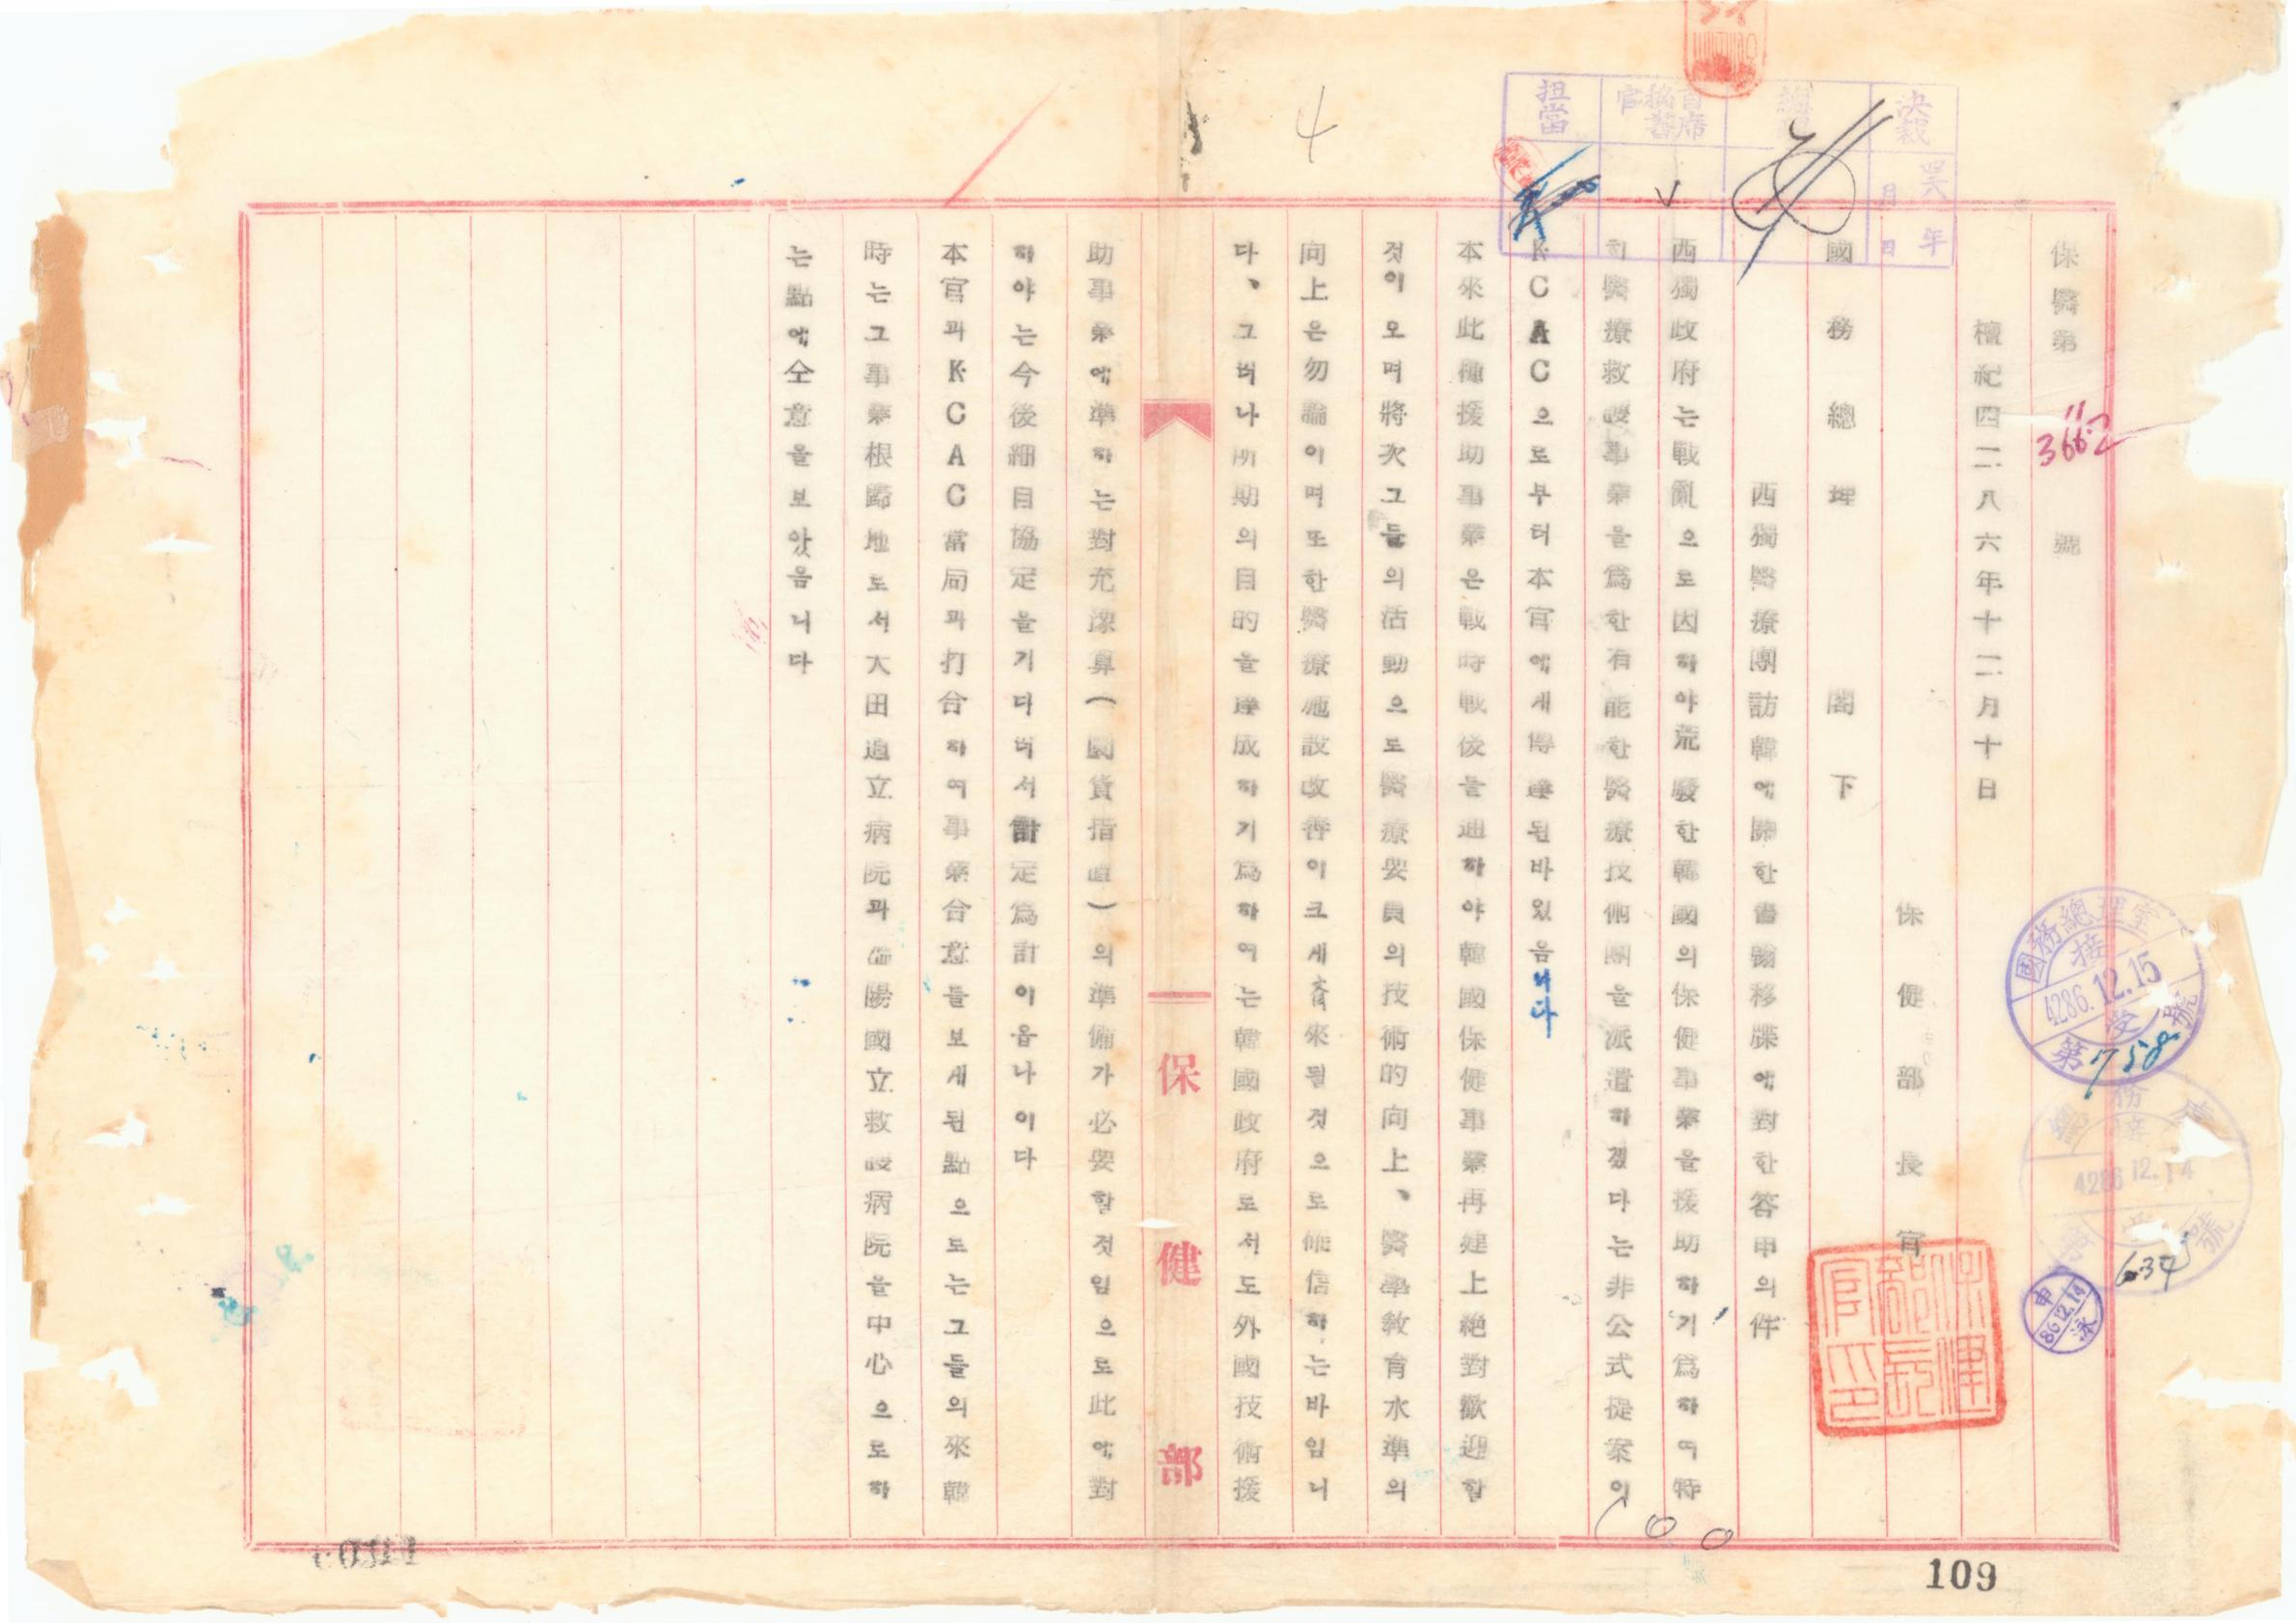 保醫第3662號
檀紀四二八六年十二月十日
保健部長官
國務總理 閣下
西獨醫療團訪韓에關한書翰移牒에對한答申의件
西獨政府는戰亂으로因하야荒廢한韓國의保健事業을援助하기爲하여特
히醫療救護事業을爲한有能한醫療技術團을派遣하겠다는非公式提案이
KCAC으로부터本官에게傳達된바있음니다
本來此種援助事業은戰時戰後를通하야韓國保健事業再建上絶對歡迎할
것이오며將次그들의活動으로醫療要員의技術的向上、醫學敎育水準의
向上은勿論이며또한醫療施設改善이크게齎來될것으로確信하는바임니
다、그러나所期의目的을達成하기爲하여는韓國政府로서도外國技術援
助事業에準하는對充豫算(圜貨指直)의準備가必要할것임으로此에對
하야는今後細目協定을기다려서計定爲計이옵나이다
本官과KCAC當局과打合하여事業合意를보게된點으로는그들의來韓
時는그事業根據地로서大田道立病院과 陽國立救護病院을中心으로하
는點에仝意을보았음니다
保健部
決裁 四八年 月 日
首席秘書官
担當
4
國務總理室
接受
4286.12.15
第758號
總務處
接受
4286.12.14
634號
申
86.12.14
泳
109